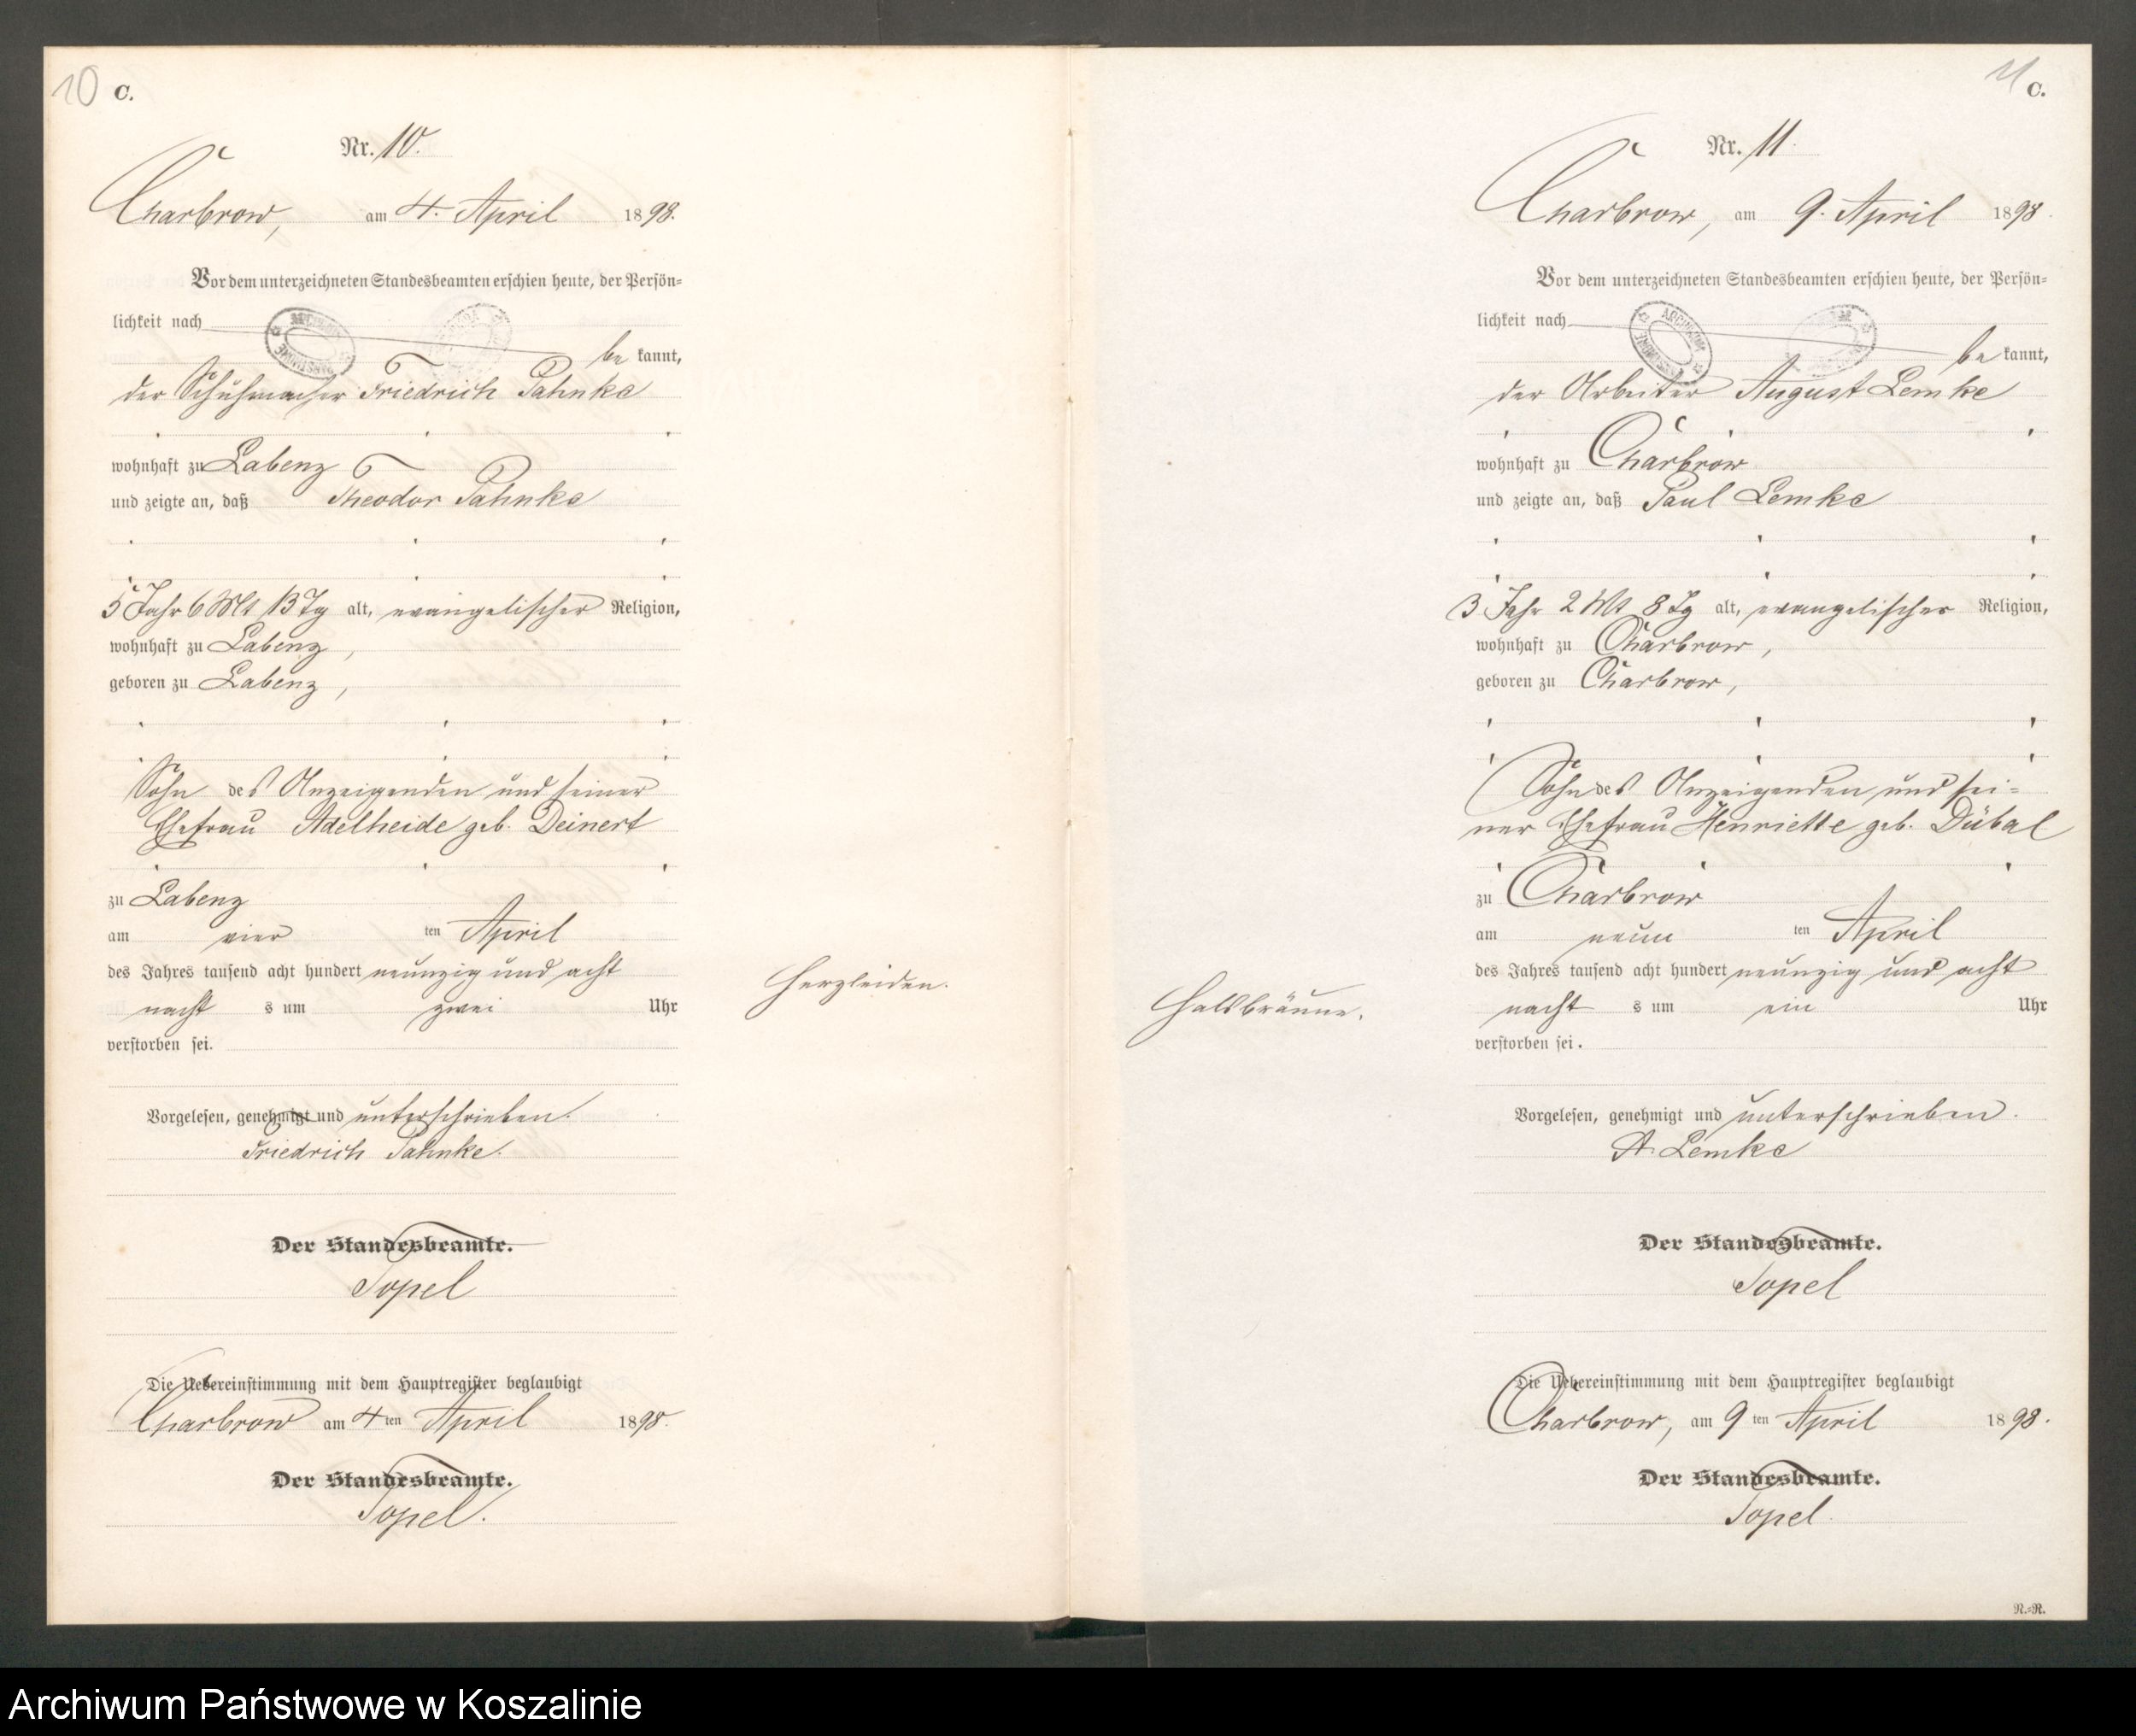 10 C.
Nr. 10.
Charbrow, am 4. April 1898.
Vor dem unterzeichneten Standesbeamten erschien heute, der Persön=
lichkeit nach
be kannt,
der Schuhmacher Friedrich Pahnke
wohnhaft zu Labenz
und zeigte an, daß Theodor Pahnke
5 Jahr 6 Mt 13 Tg alt, evangelischer Religion,
wohnhaft zu Labenz,
geboren zu Labenz,
Sohn des Anzeigenden und seiner
Ehefrau Adelheide geb. Deinert
zu Labenz
am vier ten April
des Jahres tausend acht hundert neunzig und acht
nacht s um zwei Uhr
verstorben sei.
Herzleiden.
Vorgelesen, genehmigt und unterschrieben.
Friedrich Pahnke.
Der Standesbeamte.
Topel
Die Uebereinstimmung mit dem Hauptregister beglaubigt
Charbrow am 4 ten April 1898.
Der Standesbeamte.
Topel.
11 C.
Nr. 11.
Charbrow, am 9. April 1898.
Vor dem unterzeichneten Standesbeamten erschien heute, der Persön=
lichkeit nach
be kannt,
der Arbeiter August Lemke
wohnhaft zu Charbrow
und zeigte an, daß Paul Lemke
3 Jahr 2 Mt 8 Tg alt, evangelischer Religion,
wohnhaft zu Charbrow,
geboren zu Charbrow,
Sohn des Anzeigenden und sei=
ner Ehefrau Henriette geb. Dübal
zu Charbrow
am neun ten April
des Jahres tausend acht hundert neunzig und acht
nacht s um ein Uhr
verstorben sei.
Halsbräune.
Vorgelesen, genehmigt und unterschrieben.
A. Lemke
Der Standesbeamte.
Topel
Die Uebereinstimmung mit dem Hauptregister beglaubigt
Charbrow, am 9 ten April 1898.
Der Standesbeamte.
Topel.
R.=R.
Archiwum Państwowe w Koszalinie